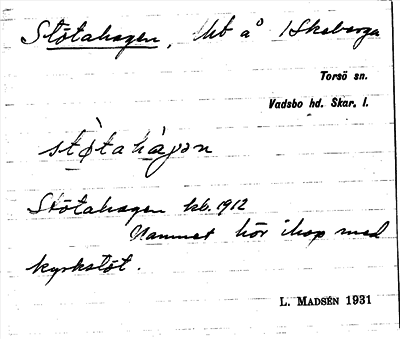 Stötahagen, Ub å 1 Skaberga
Torsö sn.
Vadsbo hd. Skar. l.
stø̀tahàgən
Stötahagen kb. 1912
Namnet hör ihop med
kyrkstöt.
L. MADSÉN 1931